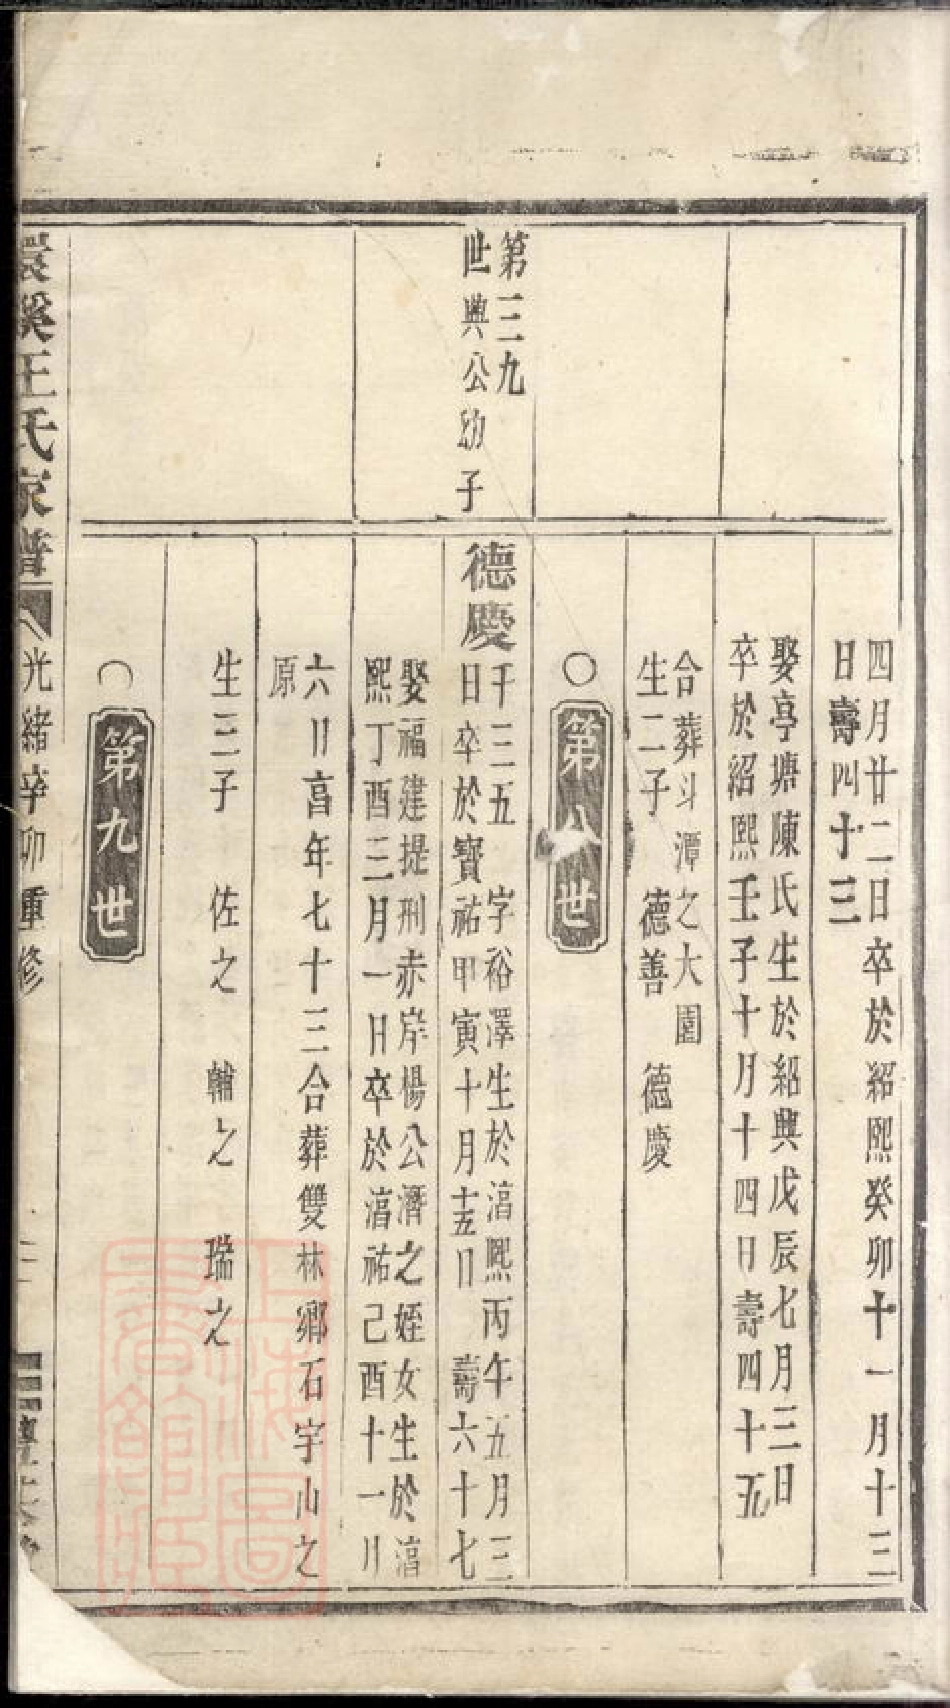 四月廿二日卒於紹熙癸卯十一月十三
日壽四十三
娶亭塘陳氏生於紹興戊辰七月三日
卒於紹熙壬子十月十四日壽四十五
合葬斗潭之大園
生二子 德善 德慶
○第八世
第三九
世興公幼子
德慶
千三五 字裕澤生於湻熙丙午五月三
日卒於寳祐甲寅十月十五日 壽六十七
娶福建提刑赤岸楊公濟之姪女生於湻
熙丁酉三月一日卒於湻祐己酉十一月
六日亯年七十三合葬雙林鄉石宇山之
原
生三子 佐之 輔之 瑞之
○第九世
環溪王氏家譜
光緒辛卯重修
上海圖
書館藏